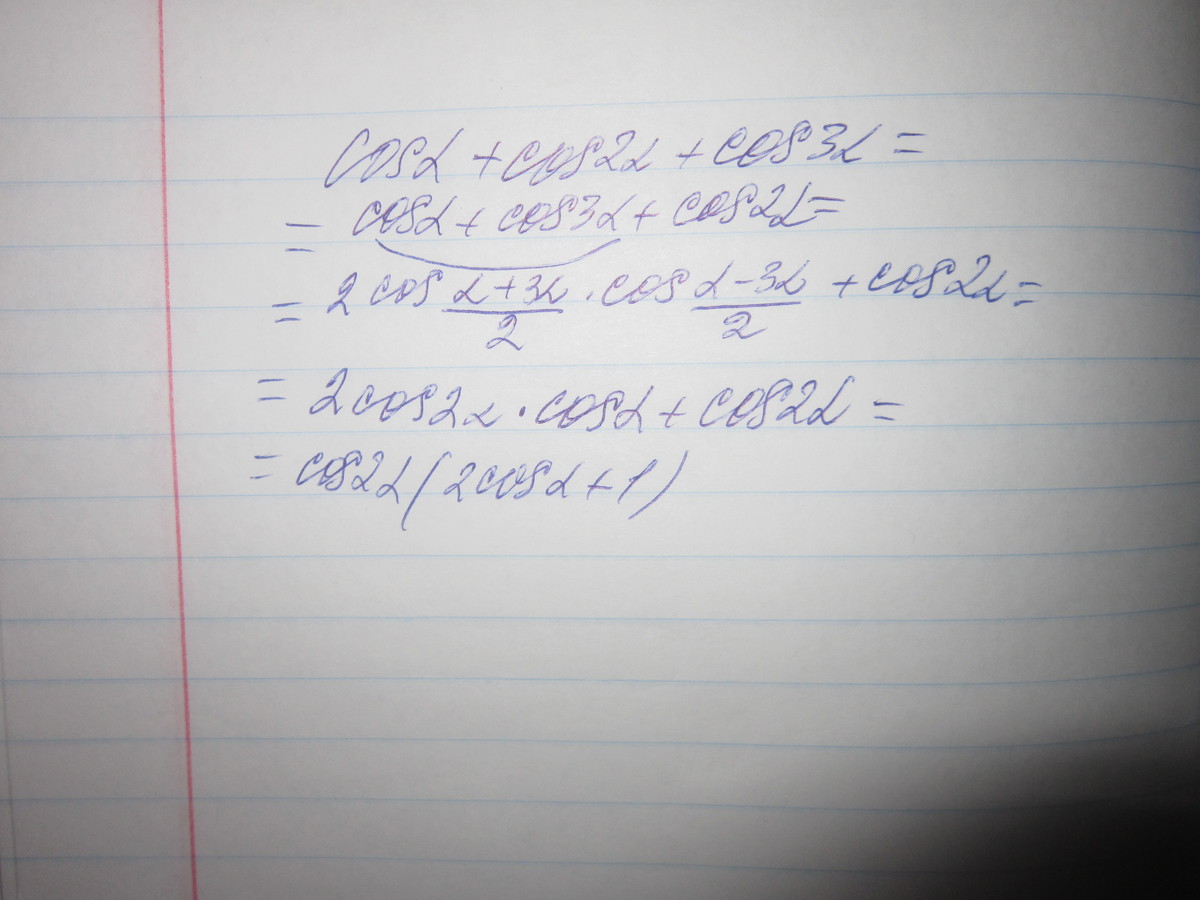 cosα + cos2α + cos3α =
= cosα + cos3α + cos2α =
= 2 cos (α + 3α)/2 · cos (α − 3α)/2 + cos2α =
= 2cos2α · cosα + cos2α =
= cos2α(2cosα + 1)